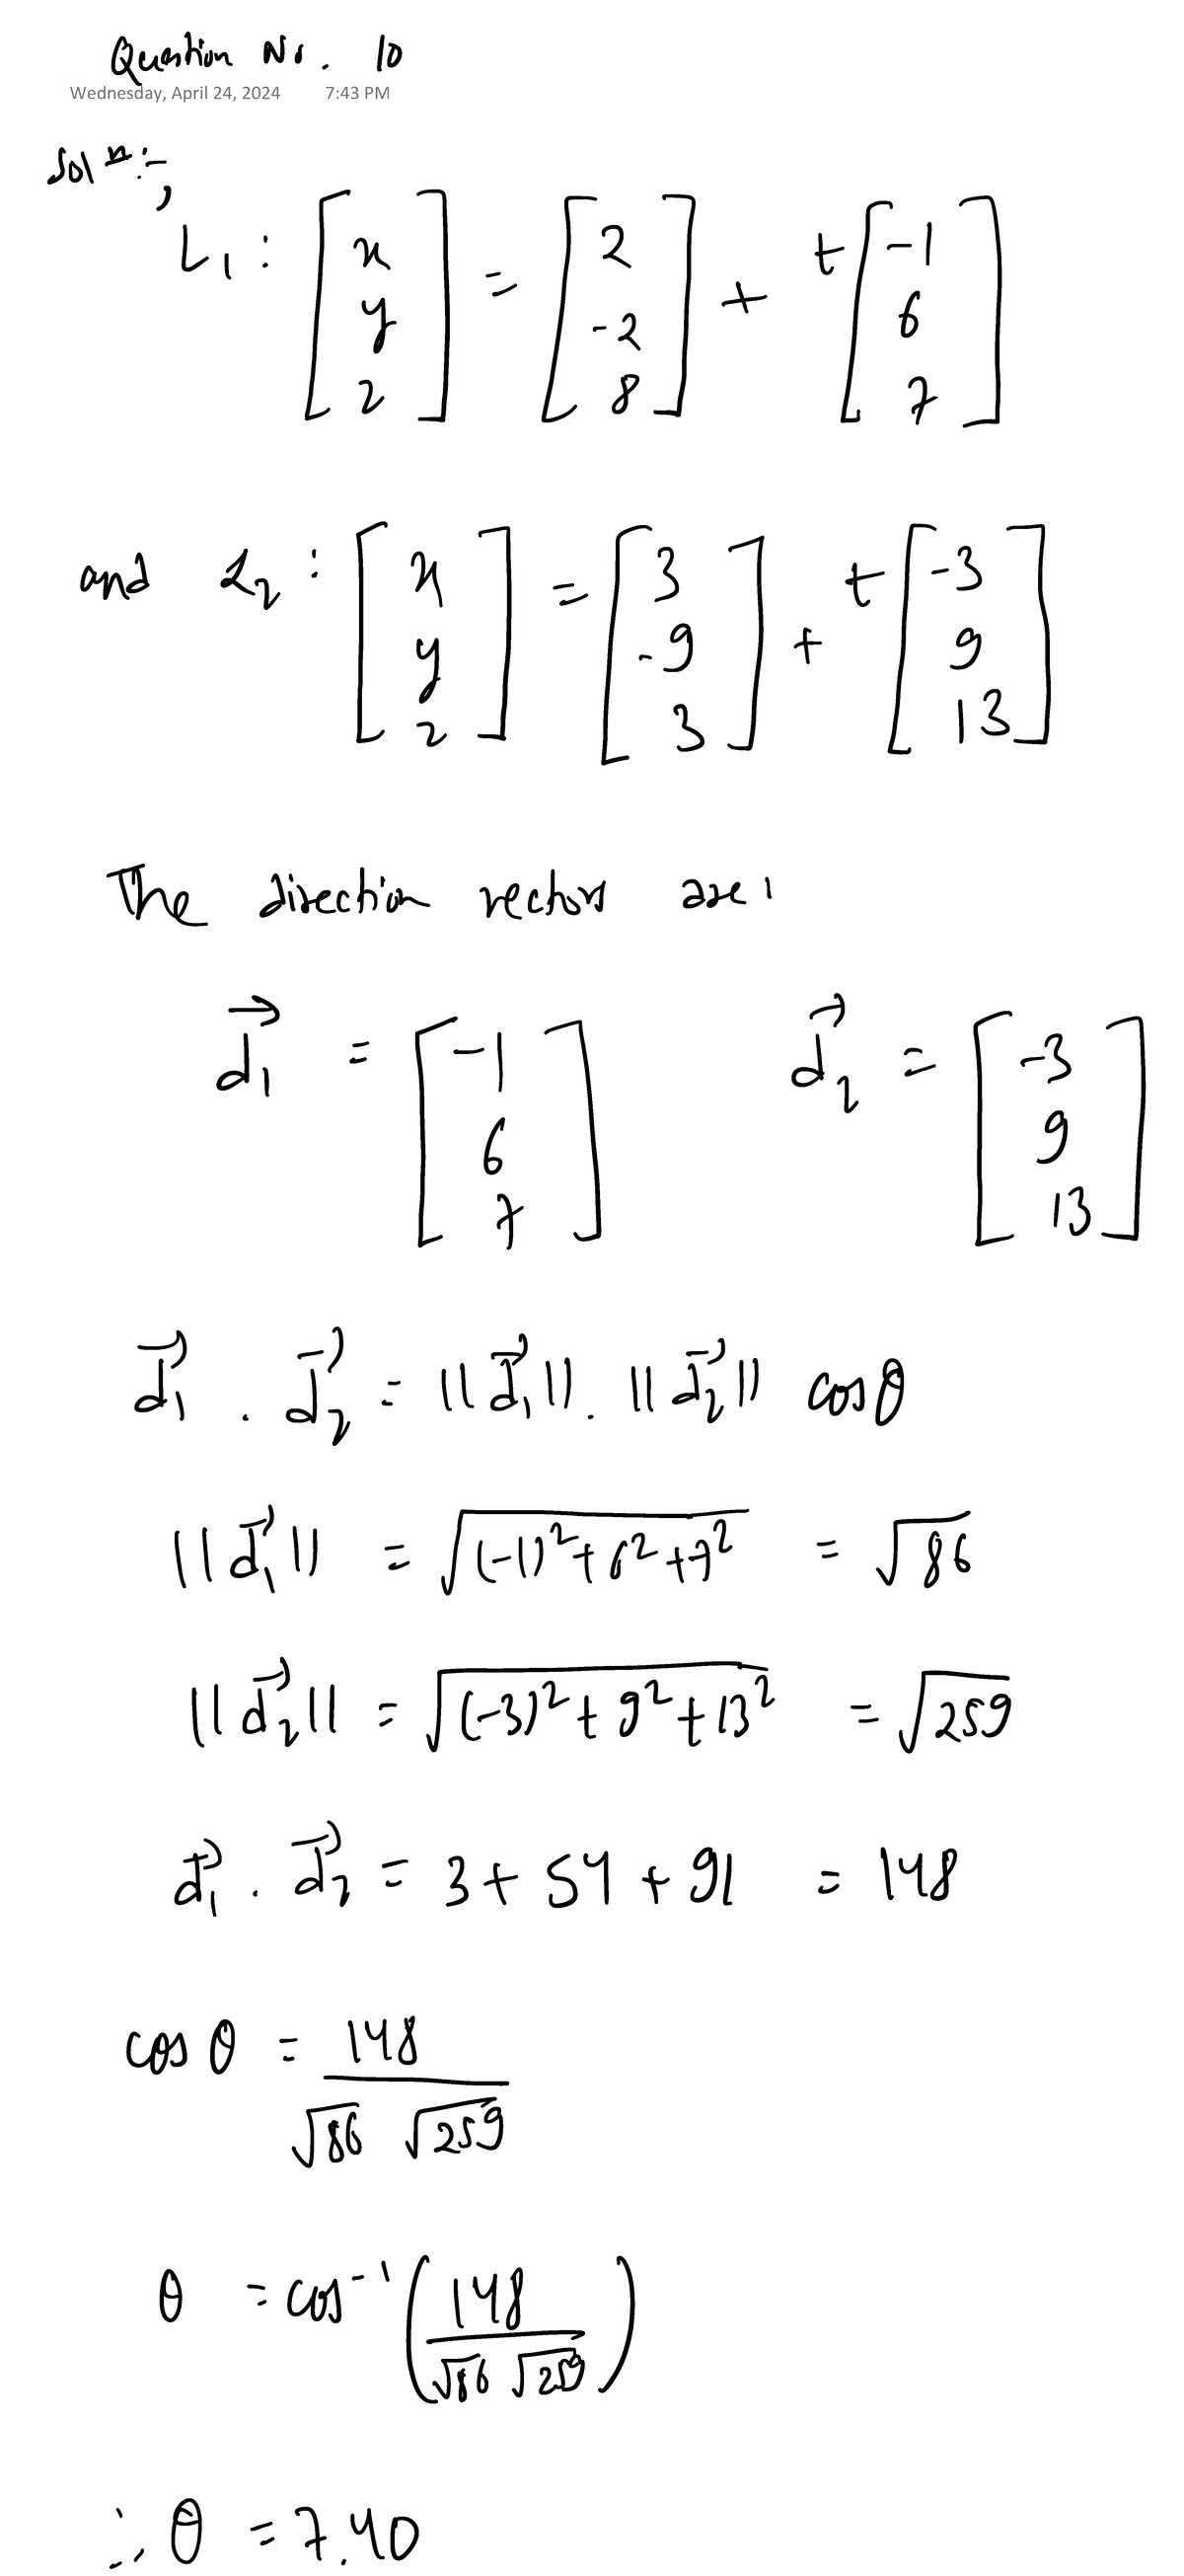 Question No. 10
Wednesday, April 24, 2024 7:43 PM
Solⁿ:-,
L₁ : [x y z] = [2 -2 8] + t [-1 6 7]
and L₂ : [x y z] = [3 -9 3] + t [-3 9 13]
The direction vectors are,
d₁→ = [-1 6 7] d₂→ = [-3 9 13]
d₁→ . d₂→ = ||d₁→|| . ||d₂→|| cos θ
||d₁→|| = √((-1)² + 6² + 7²) = √86
||d₂→|| = √((-3)² + 9² + 13²) = √259
d₁→ . d₂→ = 3 + 54 + 91 = 148
cos θ = 148 / (√86 √259)
θ = cos⁻¹ (148 / (√86 √259))
∴ θ = 7.40